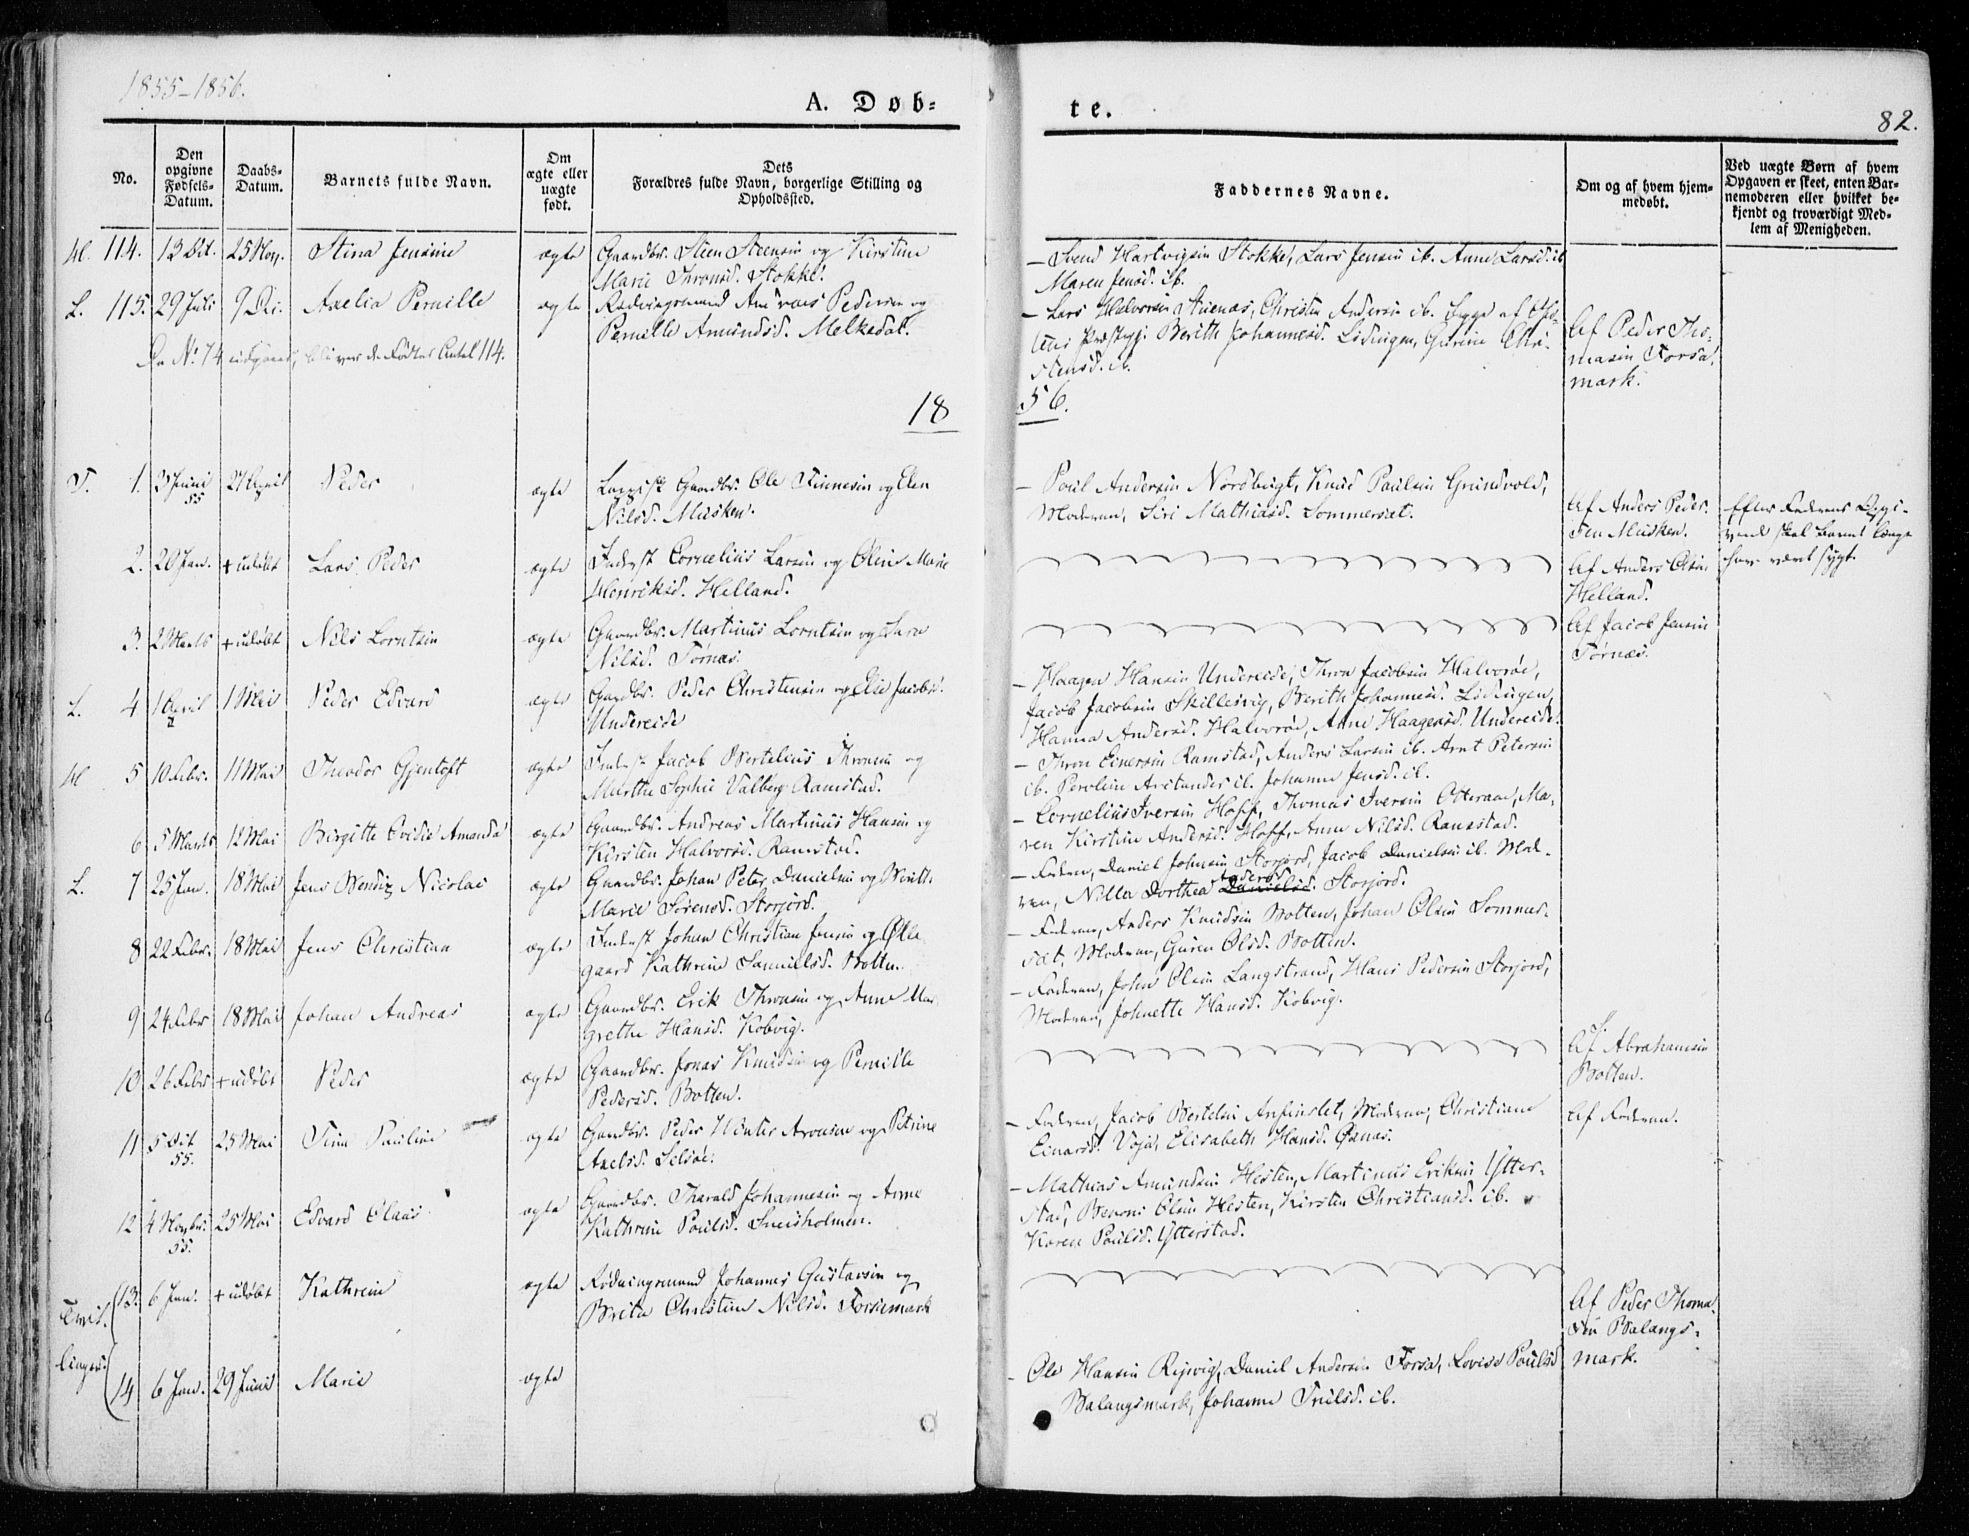 1855-1856.
A. Døb=
te.
82.
No.
Den
opgivne
Fødsels-
Datum.
Daabs-
Datum.
Barnets fulde Navn.
Om
ægte eller
uægte
født.
Dets
Forældres fulde Navn, borgerlige Stilling og
Opholdssted.
Faddernes Navne.
Om og af hvem hjem-
medøbt.
Ved uægte Børn af hvem
Opgaven er skeet, enten Bar-
nemoderen eller hvilket be-
kjendt og troværdigt Med-
lem af Menigheden.
114. 13 Oct. 25 Nov. Stina Jensine ægte Gaardbr. Steen Steensen og Kirstine
Marie Thronsd. Stokke.
- Svend Hartvigsen Stokke, Lars Jensen ib. Anne Larsd. ib
Maren Jensd. ib.
L. 115. 29 Juli 9 Dec. Axelia Pernille ægte Rødningsmand Andreas Pedersen og
Pernille Amundsd. Melkedal.
- Lars Halvorsen Stuenæs, Christen Andersen ib.
Berith Johannesd. Lødingen, Gurine Chri-
stensd. ib.
Af Peder Tho-
masen Forsa-
mark.
Da No. 74 udgaaer, bliver de Fødtes Antal 114.
18
56.
T. 1. 3 Juni 55 27 April Peder ægte Lappisk Gaardbr. Ole Finnesen og Elen
Nilsd. Musken.
- Poul Andersen Nordbugt, Knud Paulsen Grundvold,
Moderen, Siri Mathiasd. Sommerset.
Af Anders Peder-
sen Musken.
Efter Faderens Opgi-
vende skal Barnet længe
have været sygt.
2. 20 Jan. + udøbt Lars Peder ægte Inderst Cornelius Larsen og Oline Marie
Henriksd. Helland.
Af Anders Olsen
Helland.
3. 2 Marts + udøbt Nils Lorntsen ægte Gaardbr. Martinus Lorntsen og Sara
Nilsd. Tørnæs.
Af Jacob Jensen
Tørnæs.
L. 4 1 April 1 Mai Peder Edvard ægte Gaardbr. Peder Christensen og Else Jacobsd.
Undereide
- Haagen Hansen Undereide, Thron Jacobsen Halvorøe,
Jacob Jacobsen Skillesvig, Berith Johannesd. Lødingen,
Hanna Andersd. Halvorøe, Anne Haagensd. Undereide.
5 10 Febr. 11 Mai Theodor Gjentoft ægte Inderst Jacob Bertelius Thronsen og
Marthe Sophie Valberg Ramstad.
- Thron Einersen Ramstad, Anders Larsen ib. Arnt Petersen
ib. Peroline Aristander ib. Johanne Jensd. ib.
6 5 Marts 12 Mai Birgitte Ovidie Amanda ægte Gaardbr. Andreas Martinus Hansen og
Kirsten Halvorsd. Ramstad.
- Cornelius Iversen Hoff, Thomas Iversen Otteraae, Ma-
ren Kirstine Andersd. Hoff, Anne Nilsd. Ramstad.
L. 7 25 Jan. 18 Mai Jens Wendix Nicolai ægte Gaardbr. Johan Peter Danielsen og Berith
Marie Sørensd. Storjord.
- Faderen, Daniel Johnsen Storjord, Jacob Danielsen ib. Mode-
ren, Nilla Dorthea Andersd. Danielsd. Storjord.
8 22 Febr. 18 Mai Jens Christian ægte Inderst Johan Christian Jensen og Olle
gaard Kathrine Samuelsd. Botten.
- Faderen, Anders Knudsen Botten, Johan Olsen Sommer-
set, Moderen, Guren Olsd. Botten.
9 24 Febr 18 Mai Johan Andreas ægte Gaardbr. Erik Thronsen og Anne Mar
grethe Hansd. Kobvig.
- Faderen, John Olsen Langstrand, Hans Pedersen Storjord,
Moderen, Johnette Hansd. Kobvig.
10 26 Febr + udøbt Peder ægte Gaardbr. Jonas Knudsen og Pernille
Pedersd. Botten.
Af Abrahamsen
Botten.
11 5 Oct 55. 25 Mai Tina Pauline ægte Gaardbr. Peder Winter Aronsen og Petrine
Axelsd. Selsøe.
- Faderen, Jacob Bertelsen Anfinslet, Moderen, Christiane
Einarsd. Voja, Elisabeth Hansd. Oxnæs.
Af Faderen.
12 4 Novbr. 55. 25 Mai Edvard Claus ægte Gaardbr. Tharald Johannesen og Anne
Kathrine Poulsd. Sneisholmen.
- Mathias Amundsen Hesten, Martinus Eriksen Ytter-
stad, Benoni Olsen Hesten, Kirsten Christiansd. ib.
Karen Poulsd. Ytterstad.
Tvil-
linger.
13. 6 Jan. + udøbt Kathrine ægte Rødningsmand Johannes Gustavsen og
Brita Christine Nilsd. Forsemark
Af Peder Thoma-
sen Balangs-
mark.
14 6 Jan. 29 Juni Marie ægte
- Ole Hansen Rejsvig, Daniel Andersen Forsa, Lovise Poulsd
Balangsmark, Johanne Truelsd. ib.